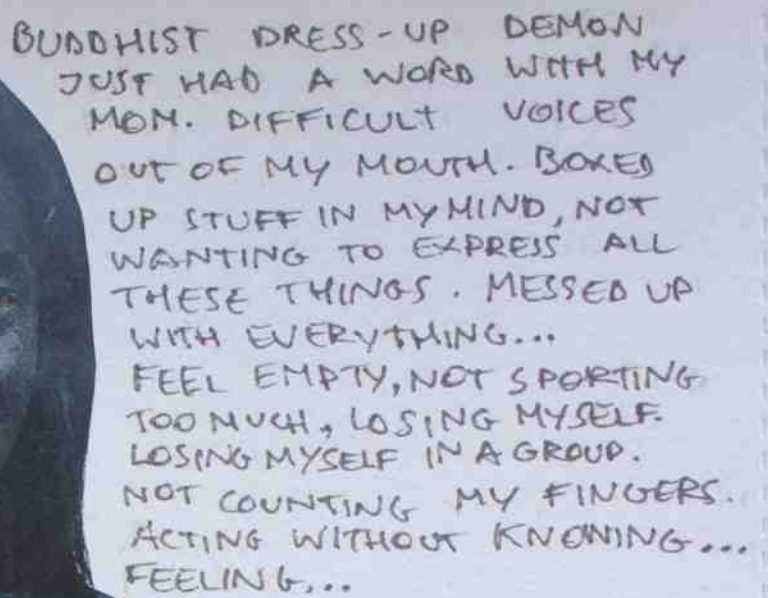 BUDDHIST DRESS-UP DEMON
JUST HAD A WORD WITH MY
MOM. DIFFICULT VOICES
OUT OF MY MOUTH. BOXED
UP STUFF IN MY MIND, NOT
WANTING TO EXPRESS ALL
THESE THINGS. MESSED UP
WITH EVERYTHING...
FEEL EMPTY, NOT SPORTING
TOO MUCH, LOSING MYSELF.
LOSING MYSELF IN A GROUP.
NOT COUNTING MY FINGERS.
ACTING WITHOUT KNOWING...
FEELING...